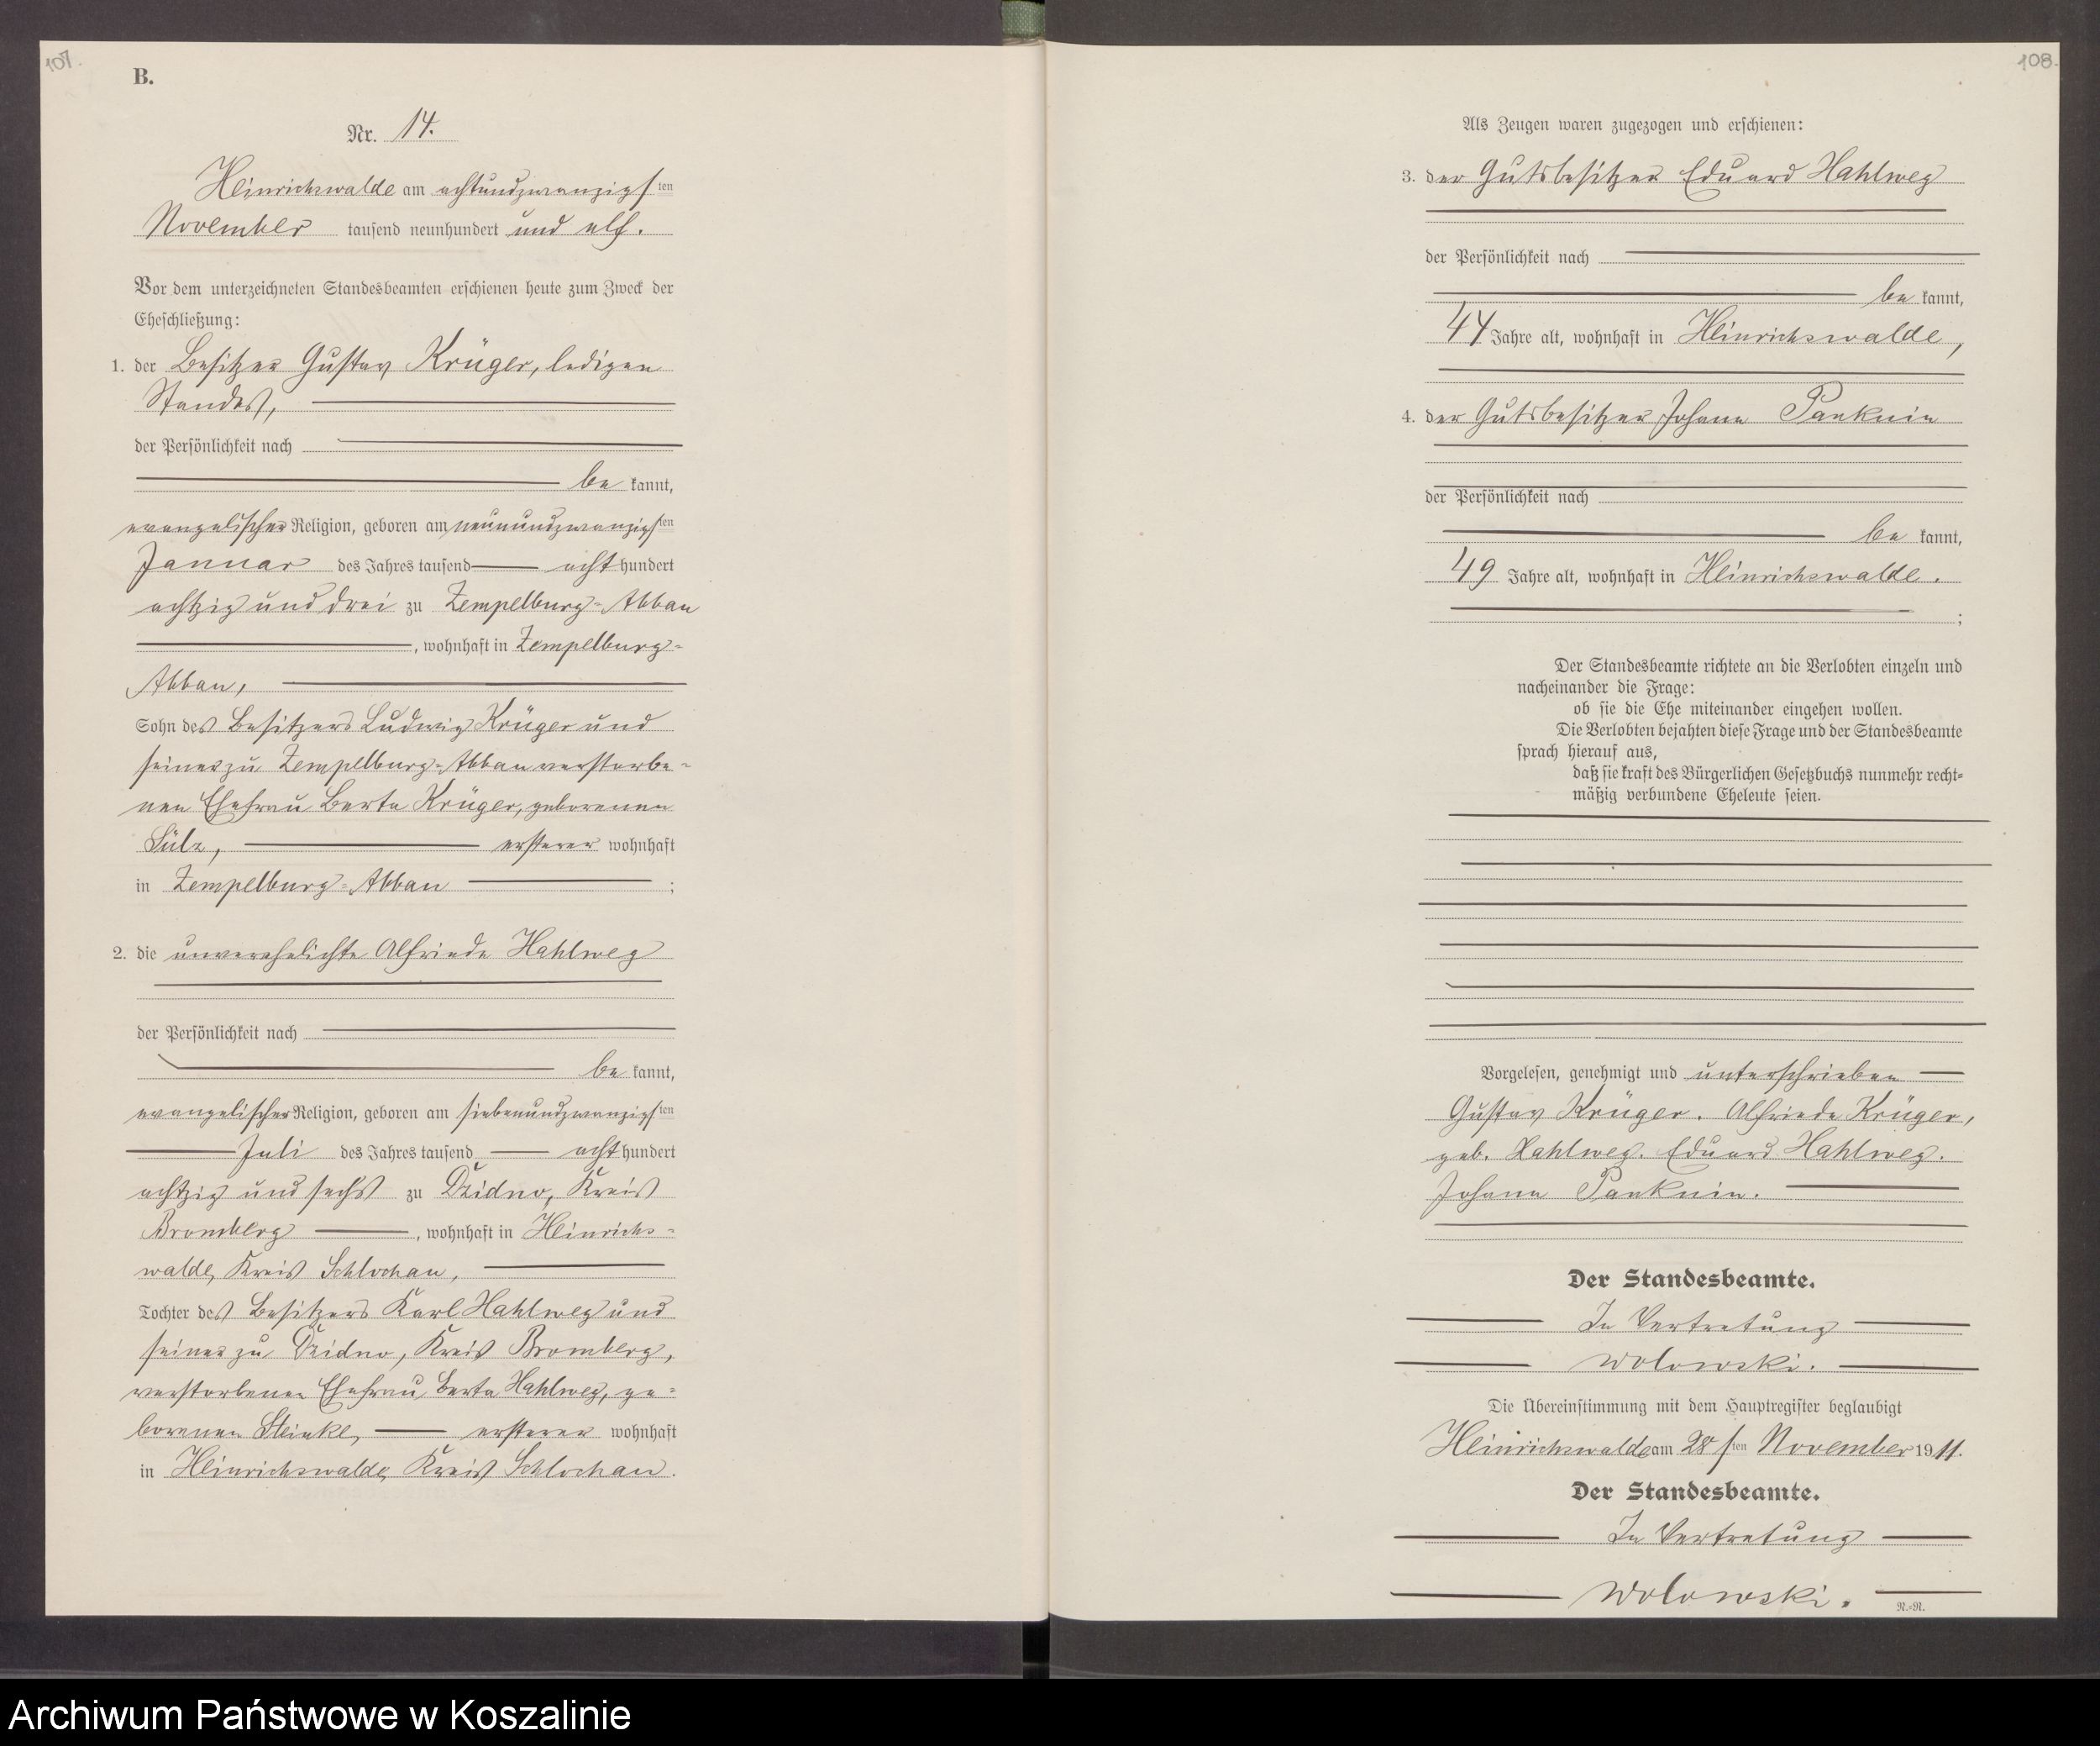 107.
B.
Nr. 14.
Heinrichswalde am achtundzwanzigsten
November tausend neunhundert und elf.
Vor dem unterzeichneten Standesbeamten erschienen heute zum Zweck der
Eheschließung:
1. der Besitzer Gustav Krüger, ledigen
Standes,
der Persönlichkeit nach
be kannt,
evangelischer Religion, geboren am neunundzwanzigsten
Januar des Jahres tausend acht hundert
achtzig und drei zu Zempelburg-Abbau
, wohnhaft in Zempelburg-
Abbau,
Sohn des Besitzers Ludwig Krüger und
seiner zu Zempelburg-Abbau verstorbe-
nen Ehefrau Berta Krüger, geborenen
Sülz, ersterer wohnhaft
in Zempelburg-Abbau ;
2. die unverehelichte Alfriede Hahlweg
der Persönlichkeit nach
be kannt,
evangelischer Religion, geboren am siebenundzwanzigsten
Juli des Jahres tausend acht hundert
achtzig und sechs zu Dzidno, Kreis
Bromberg , wohnhaft in Heinrichs-
walde, Kreis Schlochau,
Tochter des Besitzers Karl Hahlweg und
seiner zu Dzidno, Kreis Bromberg,
verstorbenen Ehefrau Berta Hahlweg, ge-
borenen Steinke, ersterer wohnhaft
in Heinrichswalde, Kreis Schlochau.
108.
Als Zeugen waren zugezogen und erschienen:
3. der Gutsbesitzer Eduard Hahlweg
der Persönlichkeit nach
be kannt,
44 Jahre alt, wohnhaft in Heinrichswalde,
4. der Gutsbesitzer Johann Panknin
der Persönlichkeit nach
be kannt,
49 Jahre alt, wohnhaft in Heinrichswalde.
;
Der Standesbeamte richtete an die Verlobten einzeln und
nacheinander die Frage:
ob sie die Ehe miteinander eingehen wollen.
Die Verlobten bejahten diese Frage und der Standesbeamte
sprach hierauf aus,
daß sie kraft des Bürgerlichen Gesetzbuchs nunmehr recht-
mäßig verbundene Eheleute seien.
Vorgelesen, genehmigt und unterschrieben
Gustav Krüger. Alfriede Krüger,
geb. Hahlweg. Eduard Hahlweg.
Johann Panknin.
Der Standesbeamte.
In Vertretung
Wolowski.
Die Übereinstimmung mit dem Hauptregister beglaubigt
Heinrichswalde am 28sten November 1911.
Der Standesbeamte.
In Vertretung
Wolowski.
N.-N.
Archiwum Państwowe w Koszalinie